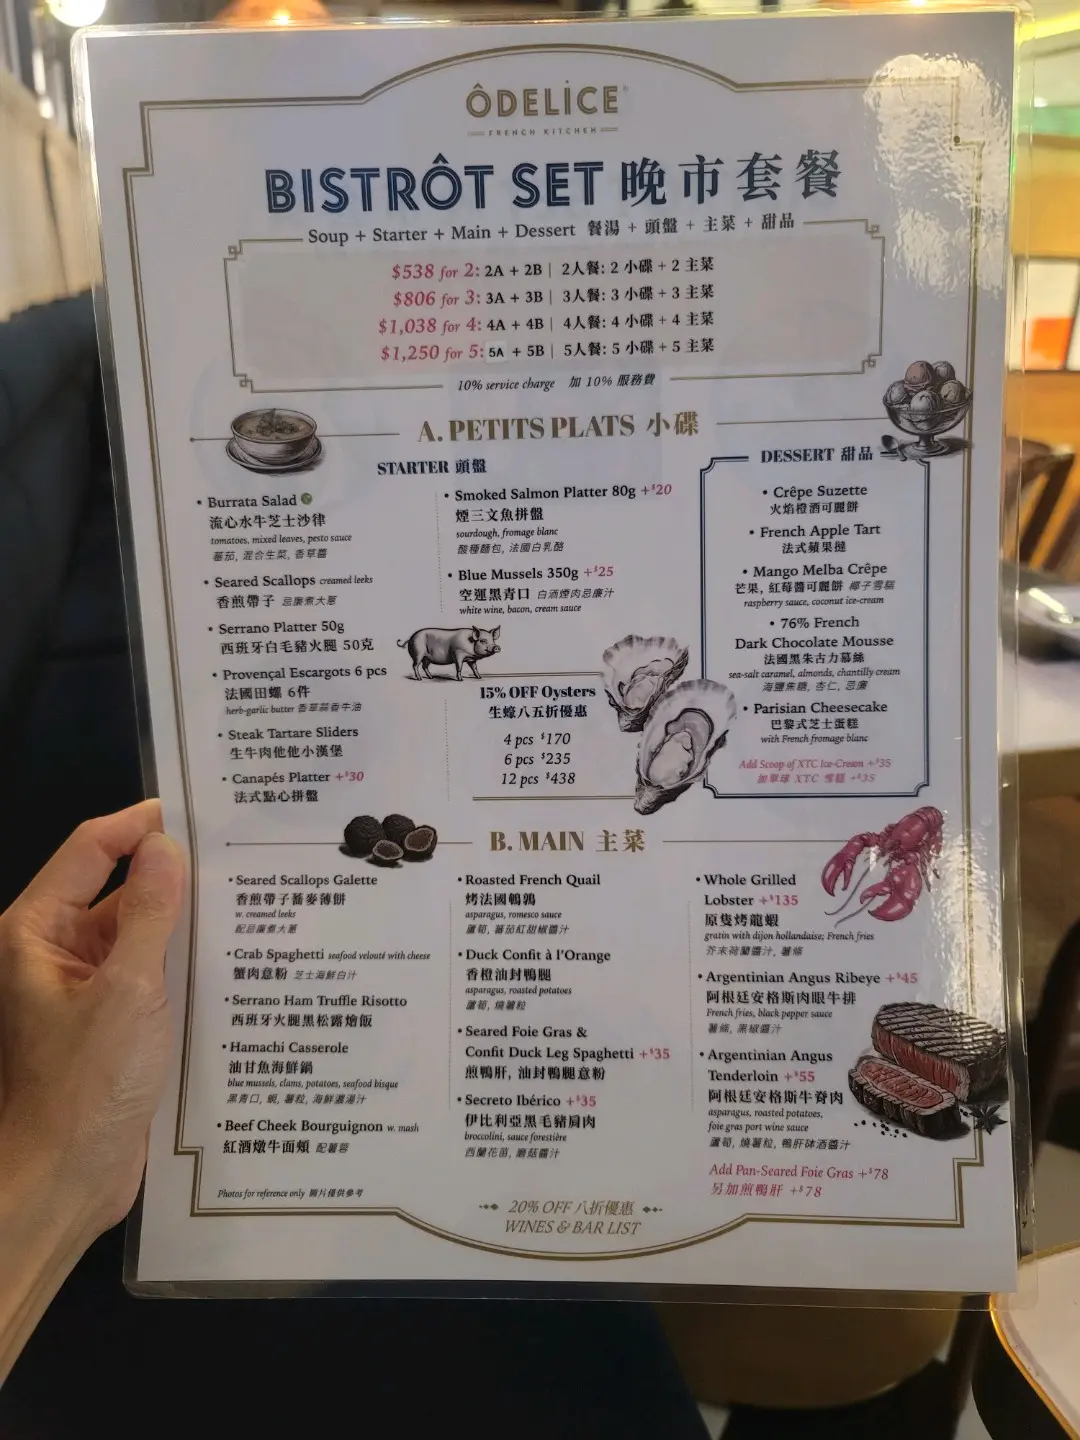 ÔDELICE
FRENCH KITCHEN
BISTRÔT SET 晚市套餐
Soup + Starter + Main + Dessert 餐湯 + 頭盤 + 主菜 + 甜品
$538 for 2: 2A + 2B | 2人餐: 2 小碟 + 2 主菜
$806 for 3: 3A + 3B | 3人餐: 3 小碟 + 3 主菜
$1,038 for 4: 4A + 4B | 4人餐: 4 小碟 + 4 主菜
$1,250 for 5: 5A + 5B | 5人餐: 5 小碟 + 5 主菜
10% service charge 加 10% 服務費
A. PETITS PLATS 小碟
STARTER 頭盤
• Burrata Salad
流心水牛芝士沙律
tomatoes, mixed leaves, pesto sauce
蕃茄, 混合生菜, 香草醬
• Seared Scallops creamed leeks
香煎帶子 忌廉煮大蔥
• Serrano Platter 50g
西班牙白毛豬火腿 50克
• Provençal Escargots 6 pcs
法國田螺 6件
herb-garlic butter 香草蒜香牛油
• Steak Tartare Sliders
生牛肉他他小漢堡
• Canapés Platter +$30
法式點心拼盤
• Smoked Salmon Platter 80g +$20
煙三文魚拼盤
sourdough, fromage blanc
酸種麵包, 法國白乳酪
• Blue Mussels 350g +$25
空運黑青口 白酒煙肉忌廉汁
white wine, bacon, cream sauce
15% OFF Oysters
生蠔八五折優惠
4 pcs $170
6 pcs $235
12 pcs $438
DESSERT 甜品
• Crêpe Suzette
火焰橙酒可麗餅
• French Apple Tart
法式蘋果撻
• Mango Melba Crêpe
芒果, 紅莓醬可麗餅 椰子雪糕
raspberry sauce, coconut ice-cream
• 76% French
Dark Chocolate Mousse
法國黑朱古力慕絲
sea-salt caramel, almonds, chantilly cream
海鹽焦糖, 杏仁, 忌廉
• Parisian Cheesecake
巴黎式芝士蛋糕
with French fromage blanc
Add Scoop of XTC Ice-Cream +$35
加單球 XTC 雪糕 +$35
B. MAIN 主菜
• Seared Scallops Galette
香煎帶子蕎麥薄餅
w. creamed leeks
配忌廉煮大蔥
• Crab Spaghetti seafood velouté with cheese
蟹肉意粉 芝士海鮮白汁
• Serrano Ham Truffle Risotto
西班牙火腿黑松露燴飯
• Hamachi Casserole
油甘魚海鮮鍋
blue mussels, clams, potatoes, seafood bisque
黑青口, 蜆, 薯粒, 海鮮濃湯汁
• Beef Cheek Bourguignon w. mash
紅酒燉牛面頰 配薯蓉
• Roasted French Quail
烤法國鵪鶉
asparagus, romesco sauce
蘆筍, 蕃茄紅甜椒醬汁
• Duck Confit à l'Orange
香橙油封鴨腿
asparagus, roasted potatoes
蘆筍, 燒薯粒
• Seared Foie Gras &
Confit Duck Leg Spaghetti +$35
煎鴨肝, 油封鴨腿意粉
• Secreto Ibérico +$35
伊比利亞黑毛豬肩肉
broccolini, sauce forestière
西蘭花苗, 蘑菇醬汁
• Whole Grilled
Lobster +$135
原隻烤龍蝦
gratin with dijon hollandaise; French fries
芥末荷蘭醬汁, 薯條
• Argentinian Angus Ribeye +$45
阿根廷安格斯肉眼牛排
French fries, black pepper sauce
薯條, 黑椒醬汁
• Argentinian Angus
Tenderloin +$55
阿根廷安格斯牛脊肉
asparagus, roasted potatoes,
foie gras port wine sauce
蘆筍, 燒薯粒, 鴨肝砵酒醬汁
Add Pan-Seared Foie Gras +$78
另加煎鴨肝 +$78
Photos for reference only 圖片僅供參考
20% OFF 八折優惠
WINES & BAR LIST